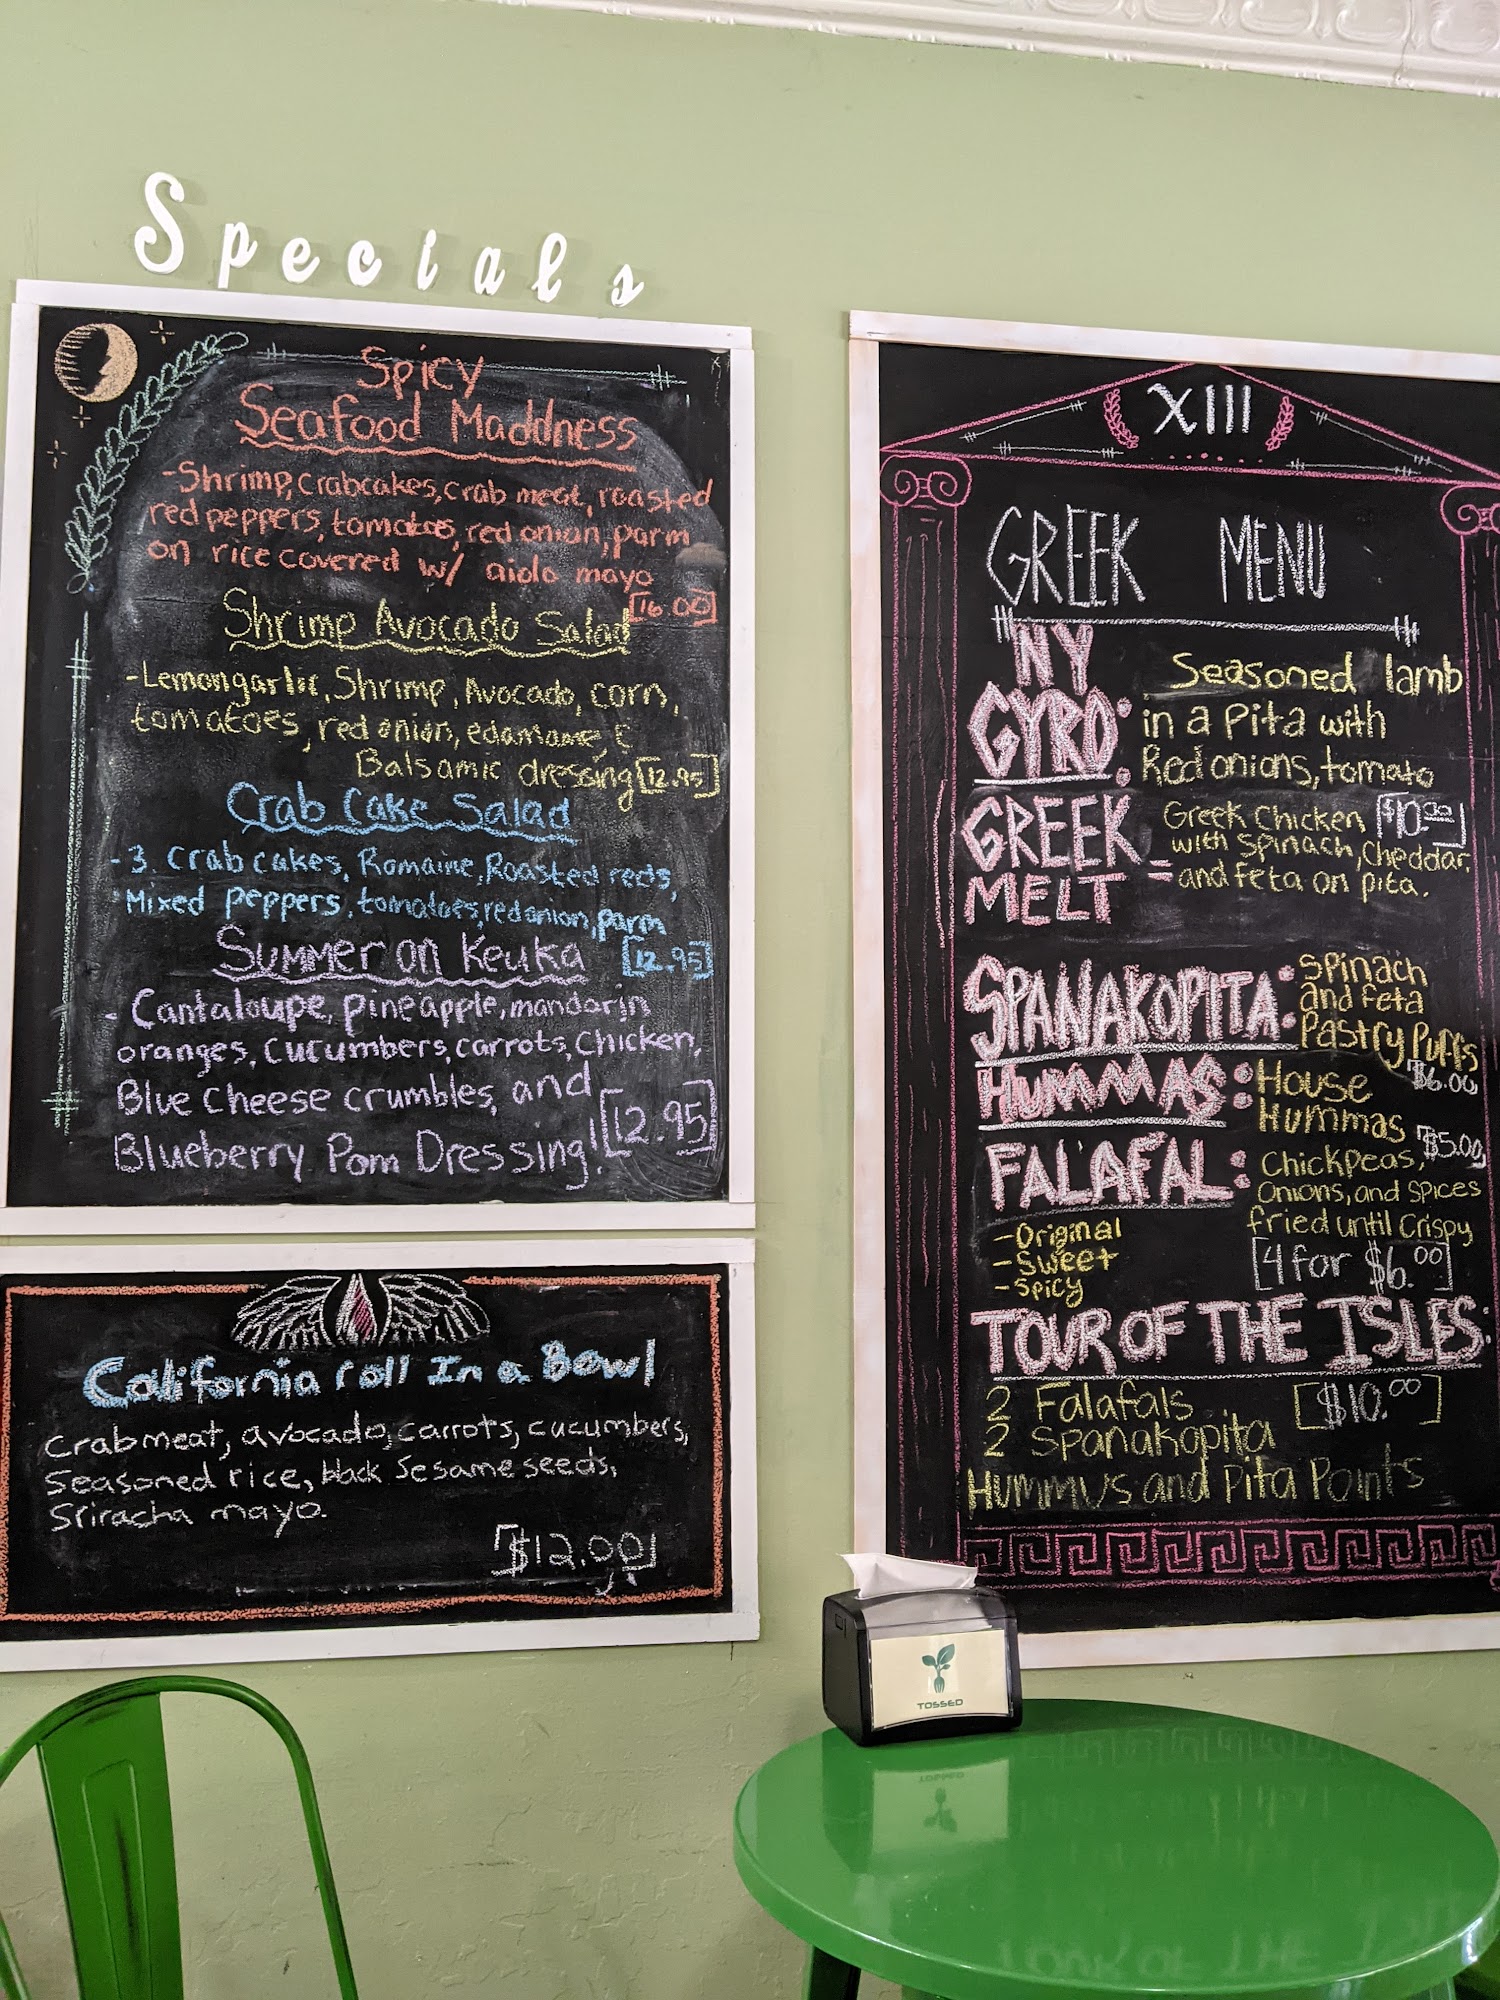 Specials
Spicy
Seafood Maddness
-Shrimp, crabcakes, crab meat, roasted
red peppers, tomatoes, red onion, parm
on rice covered w/ aiolo mayo
[16.00]
Shrimp Avocado Salad
-Lemongarlic, Shrimp, Avocado, corn,
tomatoes, red onion, edamame, &
Balsamic dressing [12.95]
Crab Cake Salad
-3 crab cakes, Romaine, Roasted reds,
Mixed peppers, tomatoes, red onion, parm
[12.95]
Summer on Keuka
- Cantaloupe, pineapple, mandorin
oranges, cucumbers, carrots, Chicken,
Blue Cheese crumbles, and
Blueberry Pom Dressing! [12.95]
California roll In a Bowl
Crabmeat, avocado, carrots, cucumbers,
Seasoned rice, black sesame seeds,
Sriracha mayo.
[$12.00]
XIII
GREEK MENU
NY
GYRO:
Seasoned lamb
in a Pita with
Red onions, tomato
[$10.00]
GREEK
MELT -
Greek Chicken
with Spinach, Cheddar,
and feta on pita.
SPANAKOPITA:
Spinach
and feta
Pastry Puffs
$6.00
HUMMAS:
House
Hummas
$5.00
FALAFAL:
Chickpeas,
onions, and spices
fried until Crispy
-Original
-Sweet
-Spicy
[4 for $6.00]
TOUR OF THE ISLES:
2 Falafals
[$10.00]
2 Spanakopita
Hummus and Pita Points
TOSSED